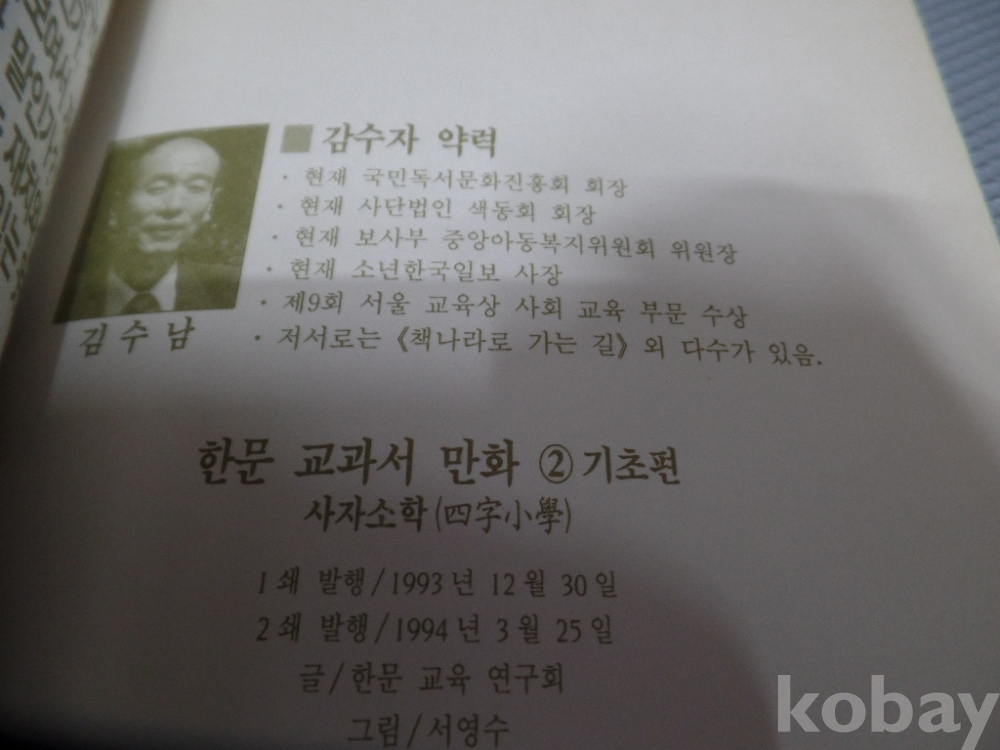 ■ 감수자 약력
· 현재 국민독서문화진흥회 회장
· 현재 사단법인 색동회 회장
· 현재 보사부 중앙아동복지위원회 위원장
· 현재 소년한국일보 사장
· 제9회 서울 교육상 사회 교육 부문 수상
· 저서로는 《책나라로 가는 길》외 다수가 있음.
김수남
한문 교과서 만화 ② 기초편
사자소학(四字小學)
1쇄 발행/1993년 12월 30일
2쇄 발행/1994년 3월 25일
글/한문 교육 연구회
그림/서영수
kobay